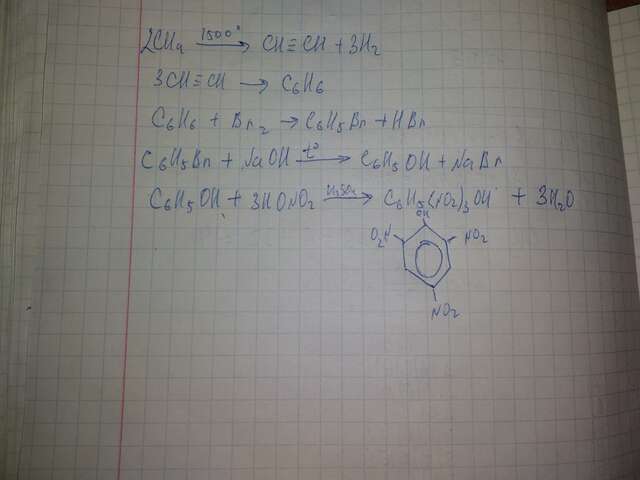 2CH₄ 1500° → CH≡CH + 3H₂
3CH≡CH → C₆H₆
C₆H₆ + Br₂ → C₆H₅Br + HBr
C₆H₅Br + NaOH t° → C₆H₅OH + NaBr
C₆H₅OH + 3HONO₂ H₂SO₄ → C₆H₅(NO₂)₃OH + 3H₂O
OH
O₂N NO₂
NO₂